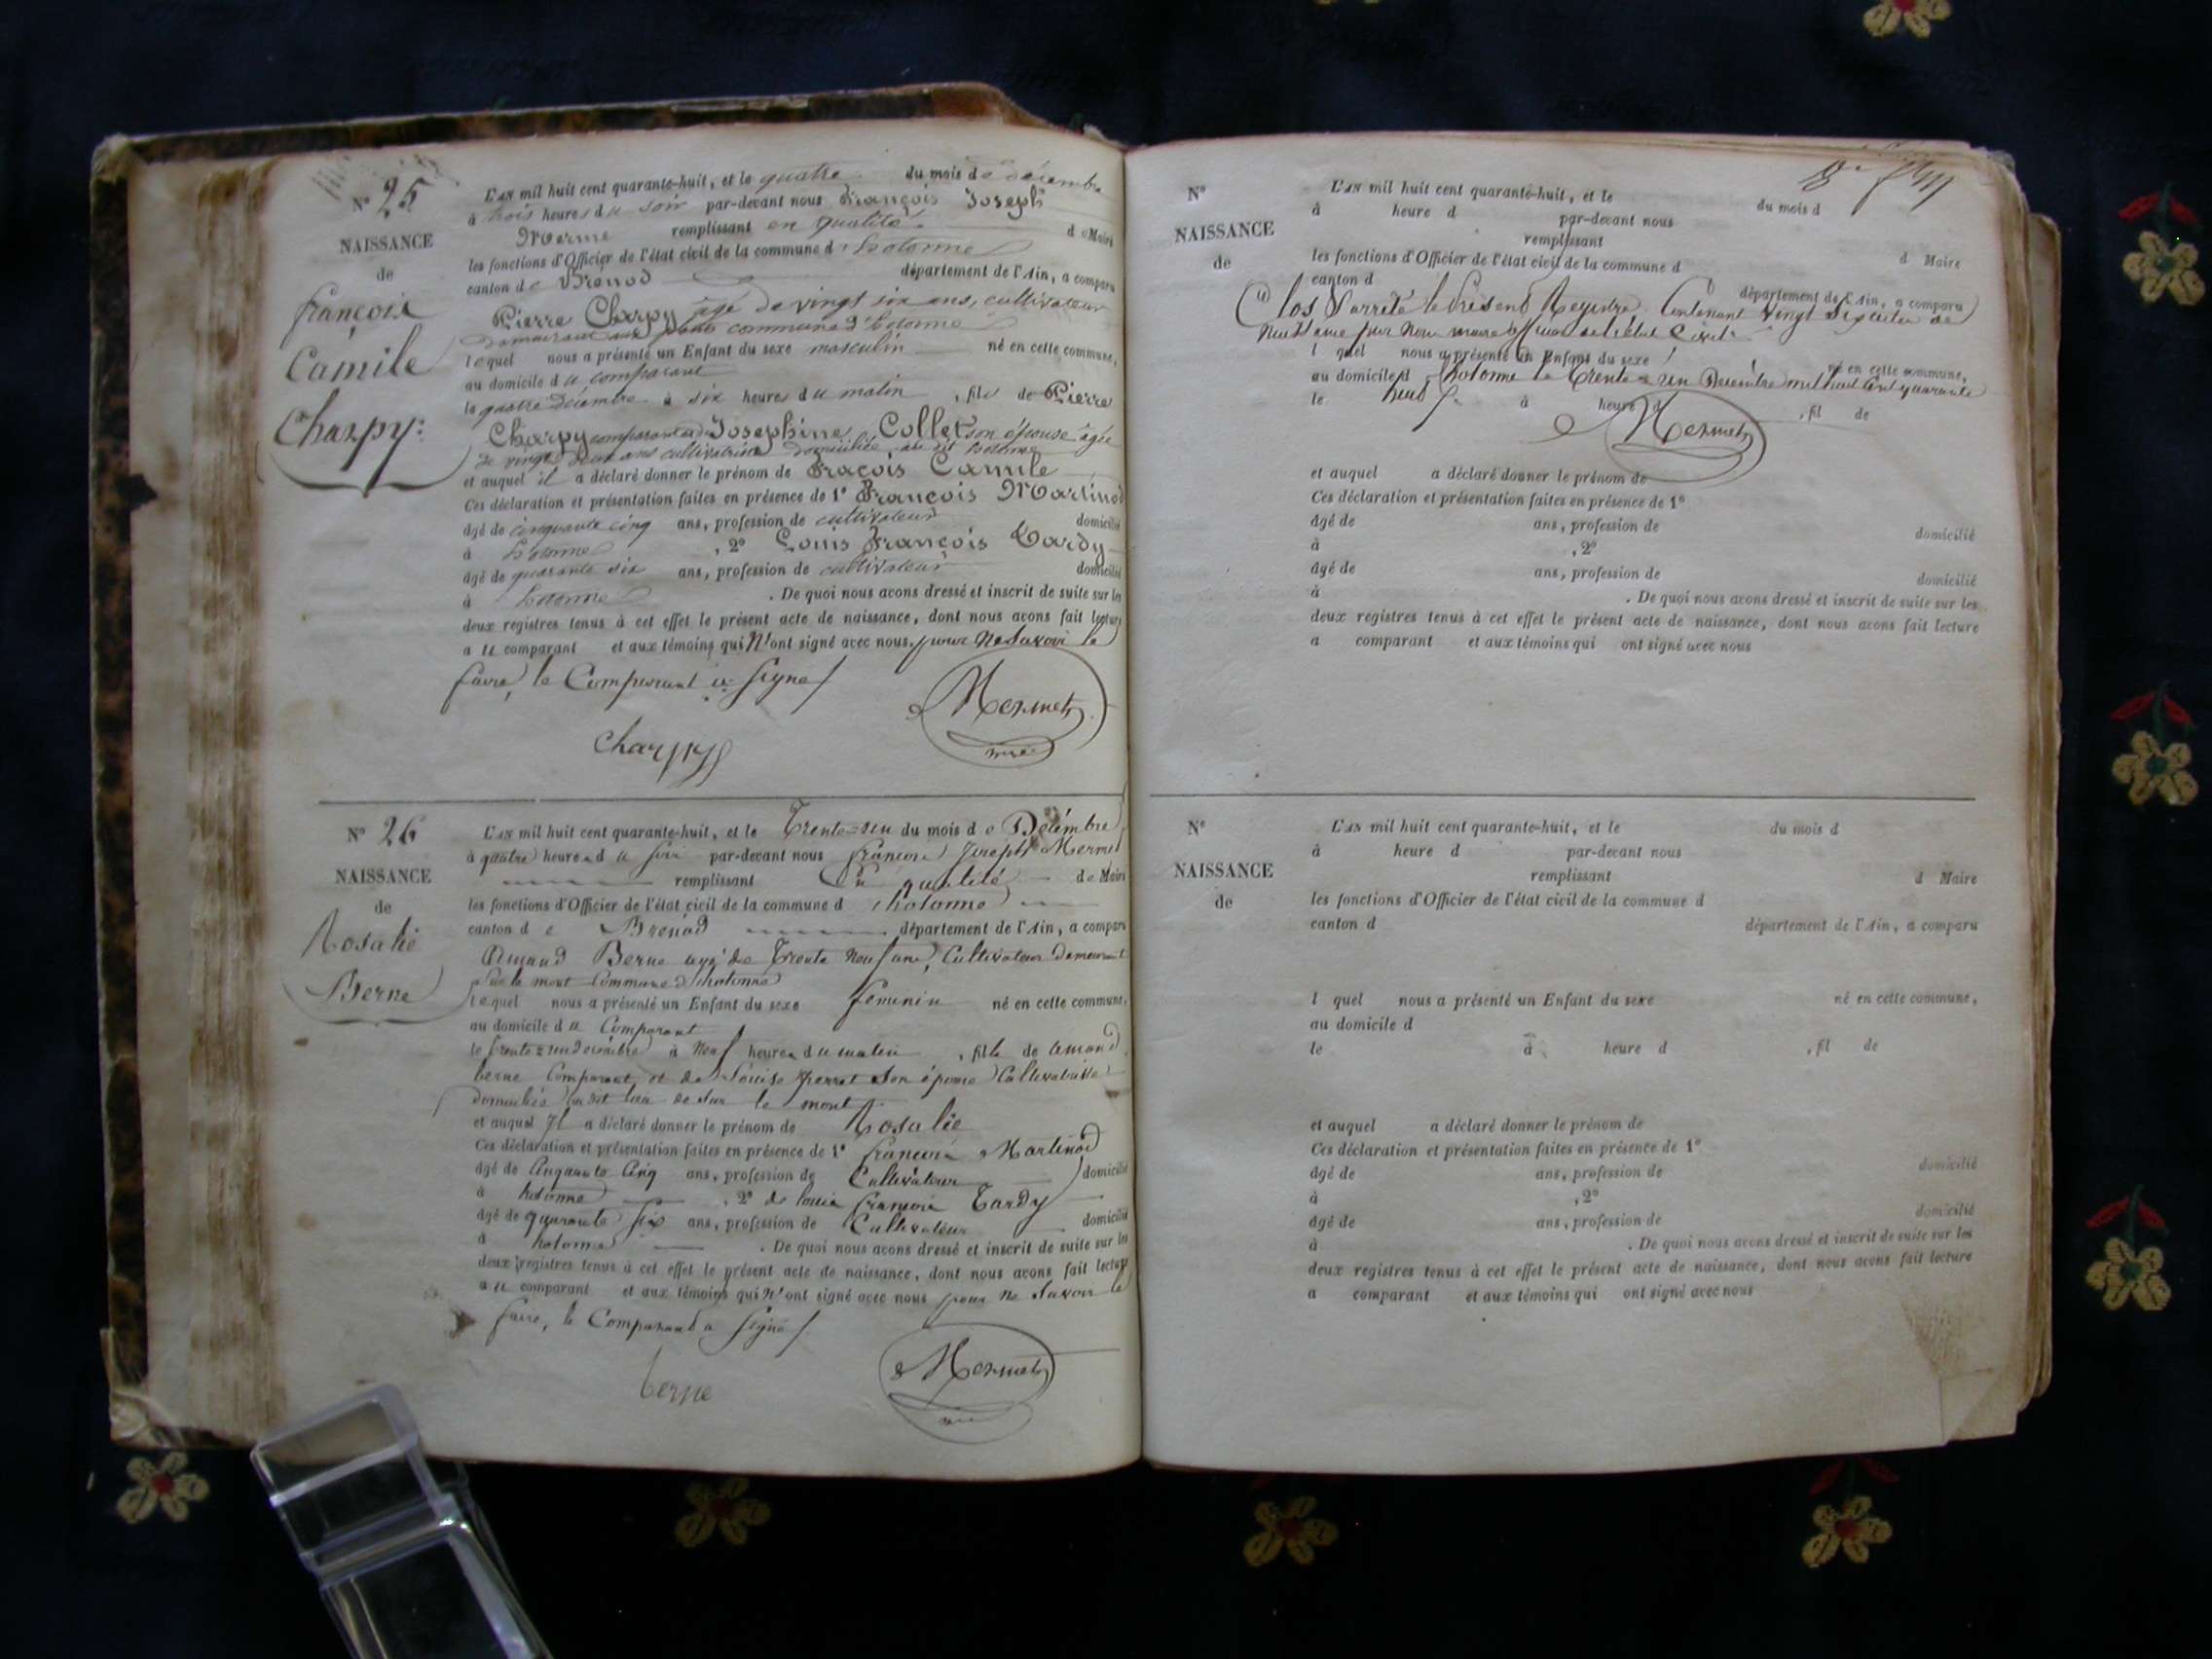 N° 25
NAISSANCE
de
françois
Camile
Charpy:
L'AN mil huit cent quarante-huit, et le quatre du mois de décembre
à trois heures du soir par-devant nous François Joseph
Merme remplissant en qualité de Maire
les fonctions d'Officier de l'état civil de la commune d'hotonne
canton de Brénod département de l'Ain, a comparu
Pierre Charpy âgé de vingt six ans, cultivateur
demeurant commune d'hotonne
lequel nous a présenté un Enfant du sexe masculin né en cette commune,
au domicile du comparant
le quatre décembre à six heures du matin, fils de Pierre
Charpy comparant et de Josephine Collet son épouse âgée
de vingt deux ans cultivatrice domiciliée au dit hotonne
et auquel il a déclaré donner le prénom de Fracois Camile
Ces déclaration et présentation faites en présence de 1° François Martinod
âgé de cinquante cinq ans, profession de cultivateur domicilié
à hotonne, 2° Louis François Tardy
âgé de quarante six ans, profession de cultivateur domicilié
à hotonne. De quoi nous avons dressé et inscrit de suite sur les
deux registres tenus à cet effet le présent acte de naissance, dont nous avons fait lecture
au comparant et aux témoins qui N'ont signé avec nous, pour ne savoir le
faire, le Comparant a signé
Charpy
Mermet
mre
N° 26
NAISSANCE
de
Rosalie
Berne
L'AN mil huit cent quarante-huit, et le Trente=un du mois de Décembre
à quatre heures du soir par-devant nous françois Joseph Mermet
remplissant En qualité de Maire
les fonctions d'Officier de l'état civil de la commune d'hotonne
canton de Brénod département de l'Ain, a comparu
Amand Berne agé de Trente neuf ans, Cultivateur demeurant
Sur le mont Commune d'hotonne
lequel nous a présenté un Enfant du sexe feminin né en cette commune,
au domicile du Comparant
le trente=un décembre à neuf heures du matin, fille de amand
berne Comparant et de Louise perret son épouse Cultivatrice
domiciliés au dit lieu de sur le mont
et auquel Il a déclaré donner le prénom de Rosalie
Ces déclaration et présentation faites en présence de 1° françois Martinod
âgé de Cinquante Cinq ans, profession de Cultivateur domicilié
à hotonne, 2° de louis françois Tardy
âgé de quarante six ans, profession de Cultivateur domicilié
à hotonne. De quoi nous avons dressé et inscrit de suite sur les
deux registres tenus à cet effet le présent acte de naissance, dont nous avons fait lecture
au comparant et aux témoins qui N'ont signé avec nous pour ne savoir le
faire, le Comparant a signé
berne
Mermet
N°
NAISSANCE
de
L'AN mil huit cent quarante-huit, et le du mois d
à heure d par-devant nous
remplissant d Maire
les fonctions d'Officier de l'état civil de la commune d
canton d département de l'Ain, a comparu
Clos & arrêté le Présent Registre Contenant Vingt Six actes de
Naissance par Nous maire officier de l'état Civil
l quel nous a présenté un Enfant du sexe né en cette commune,
au domicile d
à hotonne le Trente=un Décembre mil huit Cent quarante
huit
le à heure d, fil de
Mermet
et auquel a déclaré donner le prénom de
Ces déclaration et présentation faites en présence de 1°
âgé de ans, profession de domicilié
à, 2°
âgé de ans, profession de domicilié
à. De quoi nous avons dressé et inscrit de suite sur les
deux registres tenus à cet effet le présent acte de naissance, dont nous avons fait lecture
a comparant et aux témoins qui ont signé avec nous
N°
NAISSANCE
de
L'AN mil huit cent quarante-huit, et le du mois d
à heure d par-devant nous
remplissant d Maire
les fonctions d'Officier de l'état civil de la commune d
canton d département de l'Ain, a comparu
l quel nous a présenté un Enfant du sexe né en cette commune,
au domicile d
le à heure d, fil de
et auquel a déclaré donner le prénom de
Ces déclaration et présentation faites en présence de 1°
âgé de ans, profession de domicilié
à, 2°
âgé de ans, profession de domicilié
à. De quoi nous avons dressé et inscrit de suite sur les
deux registres tenus à cet effet le présent acte de naissance, dont nous avons fait lecture
a comparant et aux témoins qui ont signé avec nous